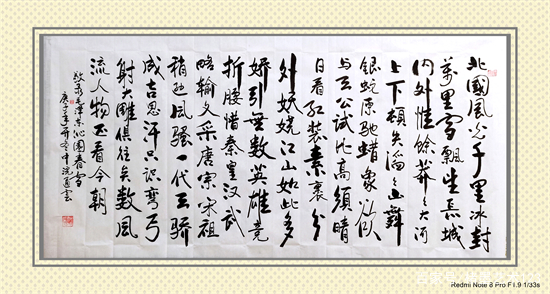 北國風光千里冰封
萬里雪飄望長城
内外惟餘莽〻大河
上下頓失滔〻山舞
銀蛇原馳蠟象欲
与天公試比高須晴
日看紅裝素裹分
外妖嬈江山如此多
嬌引無數英雄競
折腰惜秦皇漢武
略輸文采唐宗宋祖
稍遜風騷一代天驕
成吉思汗只識彎弓
射大雕俱往矣數風
流人物还看今朝
敬录毛澤東沁園春雪
庚子年
Redmi Note 8 Pro F1.9 1/33s